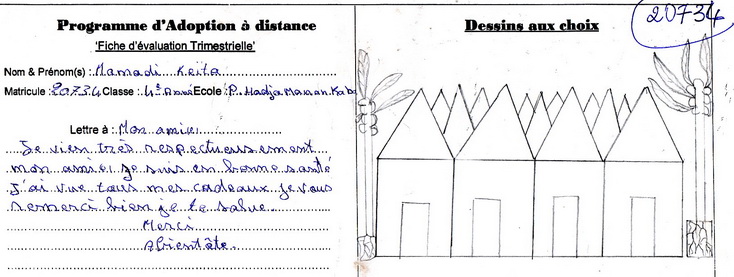 Programme d'Adoption à distance
'Fiche d'évaluation Trimestrielle'
Nom & Prénom(s) : Mamadi Keita
Matricule : 20734 Classe : 4è Année Ecole : P. Hadja Maran Kaba
Lettre à : Mon amie
Je vien très respectueusement
mon amie je suis en bonne santé
J'ai vue tous mes cadeaux je vous
remerci bien je te salue.
Merci
Abientôte.
Dessins aux choix
20734